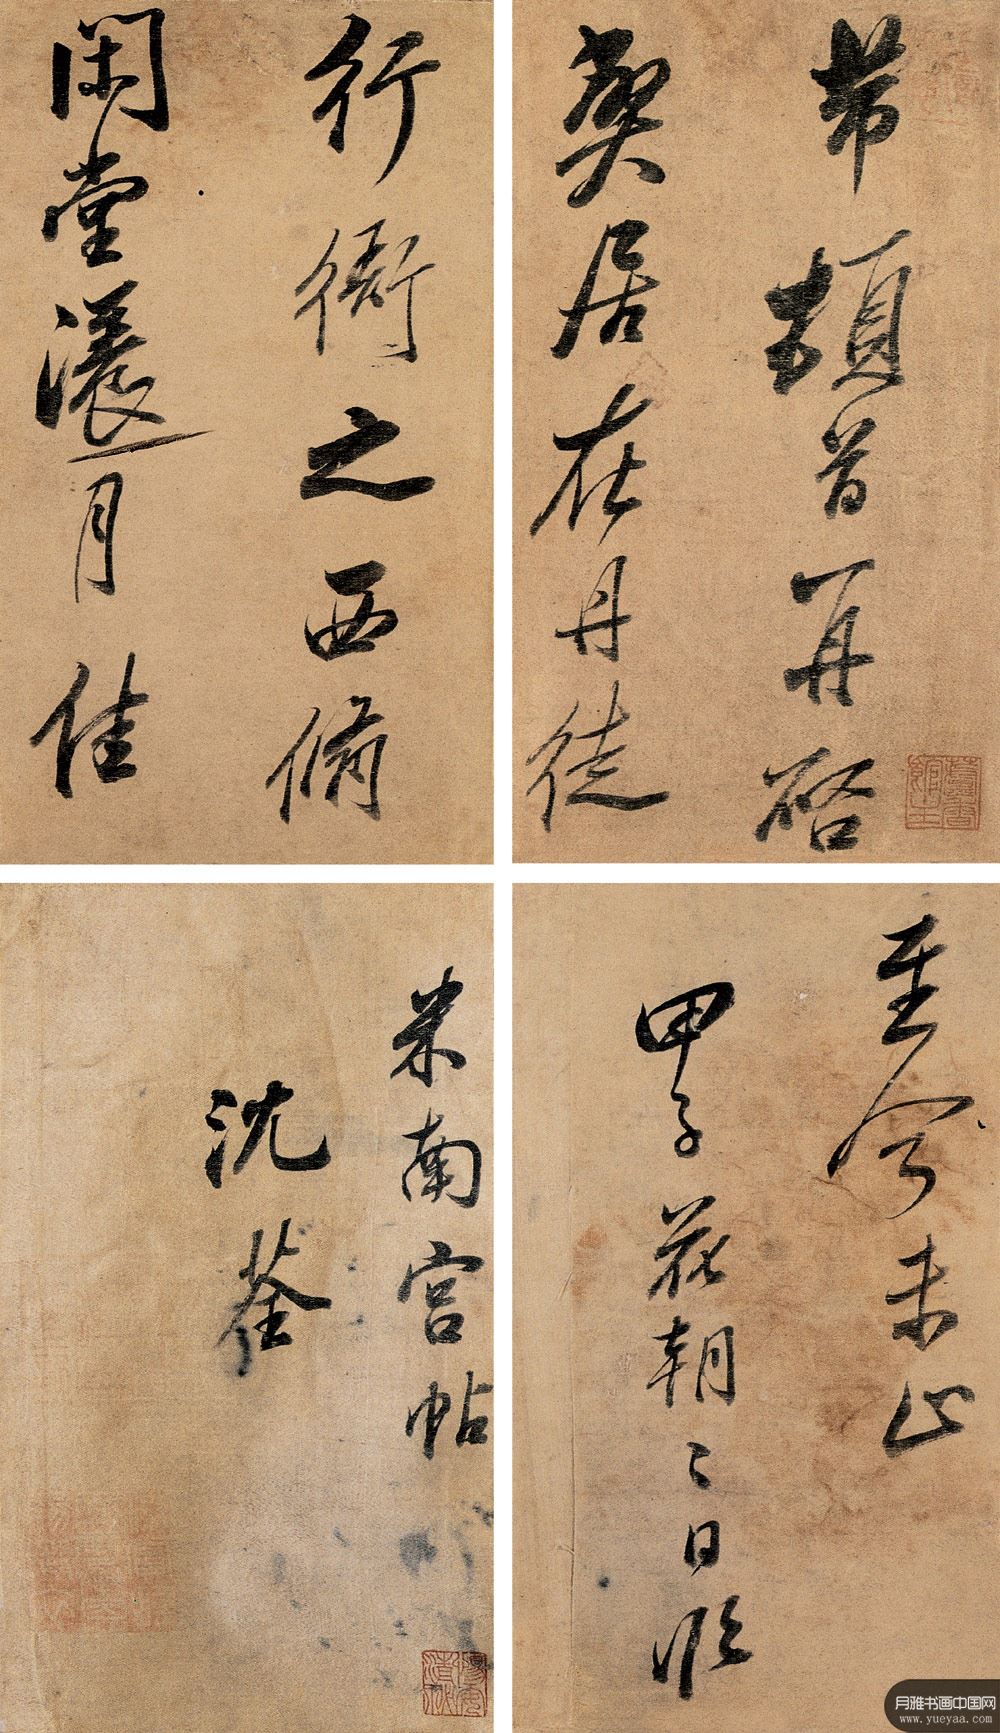 芾頓首再啓
弊居在丹徒
行衙之西翛
閑堂漾月佳
至今未止
甲子花朝二日臨
米南宫帖
沈荃
月雅书画中国网
www.yueyaa.com